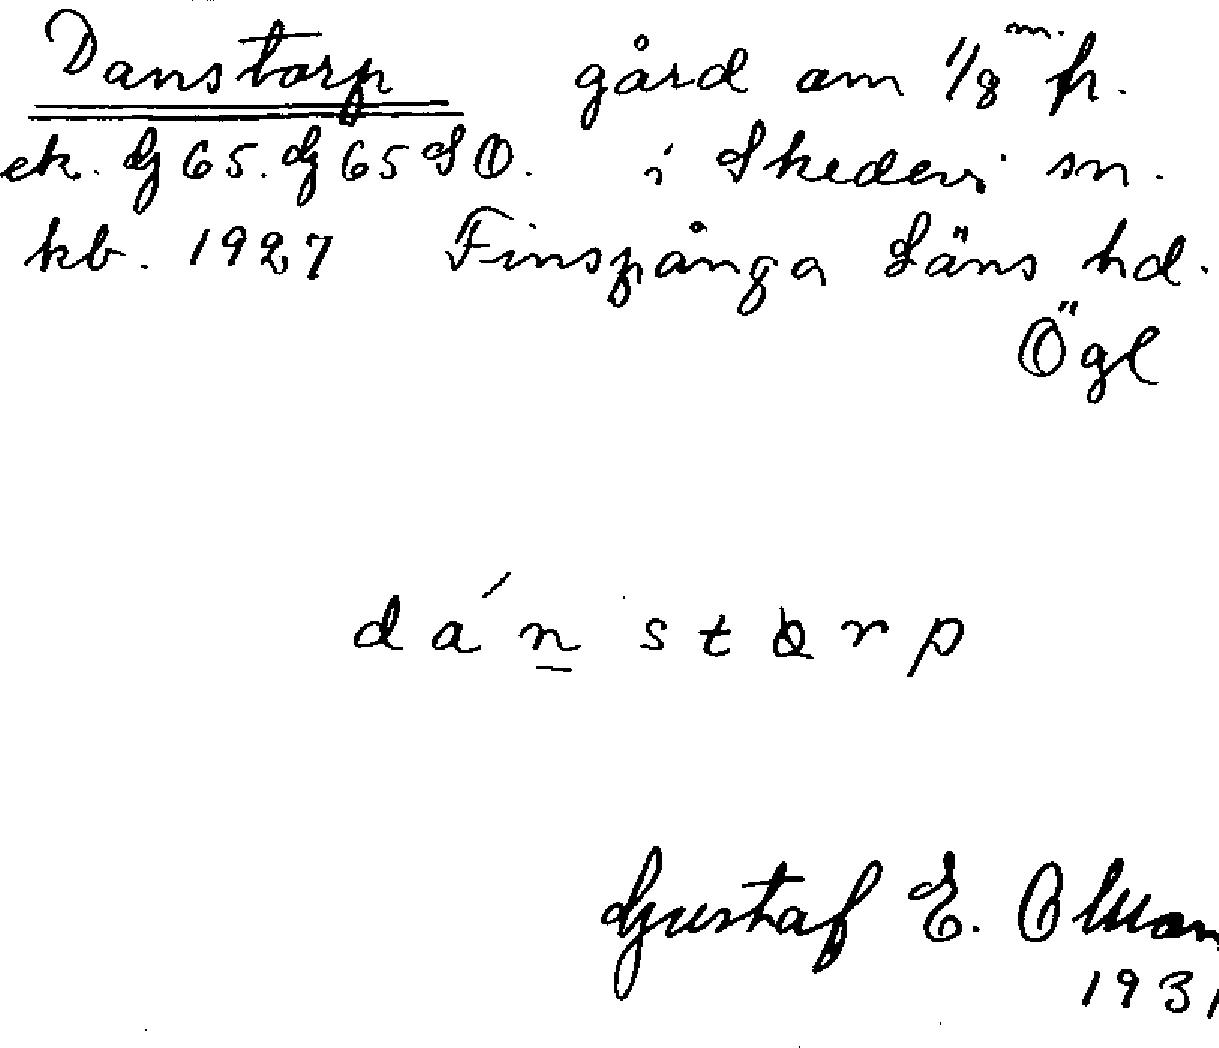 Danstorp gård om 1/8 m. fr.
ek. G 65. G 65 SO. i Skedevi sn.
kb. 1927 Finspånga Läns hd.
Ögl
dánstɷrp
Gustaf E.
1931